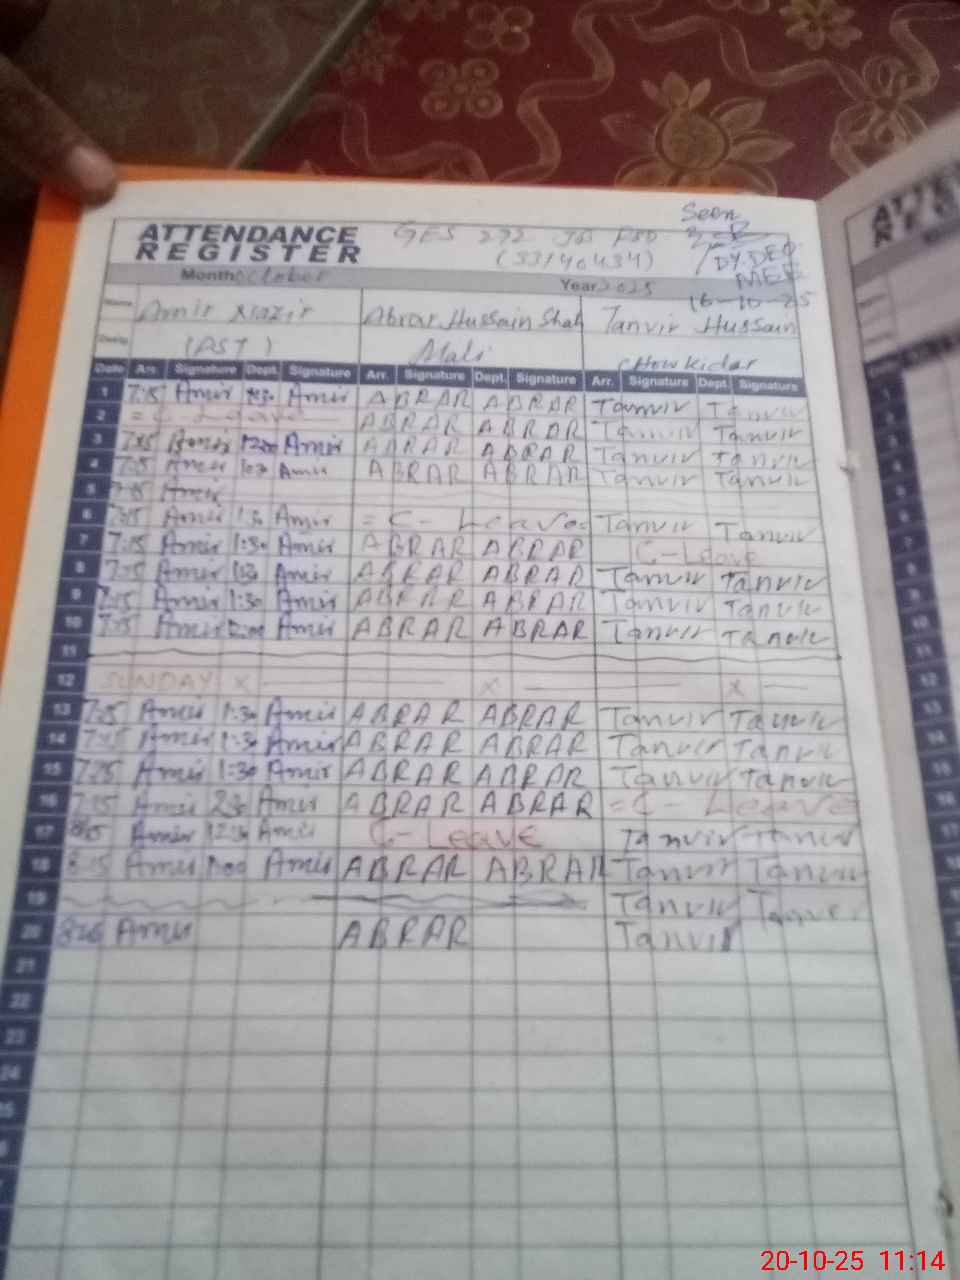 Seen
ATTENDANCE GES 272 JB FSD
REGISTER (33140434) DY. DEO
MEE
Month October Year 2025 16-10-25
Name Amir Nazir Abrar Hussain Shah Tanvir Hussain
Desig. (PST) Mali Chowkidar
Date Arr. Signature Dept. Signature Arr. Signature Dept. Signature Arr. Signature Dept. Signature
1 7:15 Amir Amir ABRAR ABRAR Tanvir Tanvir
2 = C- Leave ABRAR ABRAR Tanvir Tanvir
3 7:15 Amir 12:00 Amir ABRAR ABRAR Tanvir Tanvir
4 7:15 Amir Amir ABRAR ABRAR Tanvir Tanvir
5 7:15 Amir
6 7:15 Amir 1:30 Amir = C- Leave = Tanvir Tanvir
7 7:15 Amir 1:30 Amir ABRAR ABRAR C-Leave
8 7:15 Amir 1:30 Amir ABRAR ABRAR Tanvir Tanvir
9 7:15 Amir 1:30 Amir ABRAR ABRAR Tanvir Tanvir
10 7:15 Amir 12:00 Amir ABRAR ABRAR Tanvir Tanvir
11
12 SUNDAY x x x
13 7:15 Amir 1:30 Amir ABRAR ABRAR Tanvir Tanvir
14 7:15 Amir 1:30 Amir ABRAR ABRAR Tanvir Tanvir
15 7:15 Amir 1:30 Amir ABRAR ABRAR Tanvir Tanvir
16 7:15 Amir 2:30 Amir ABRAR ABRAR = C- Leave
17 8:15 Amir 12:30 Amir C-Leave Tanvir Tanvir
18 8:15 Amir 1:00 Amir ABRAR ABRAR Tanvir Tanvir
19 Tanvir Tanvir
20 Amir ABRAR Tanvir
21
22
23
24
20-10-25 11:14